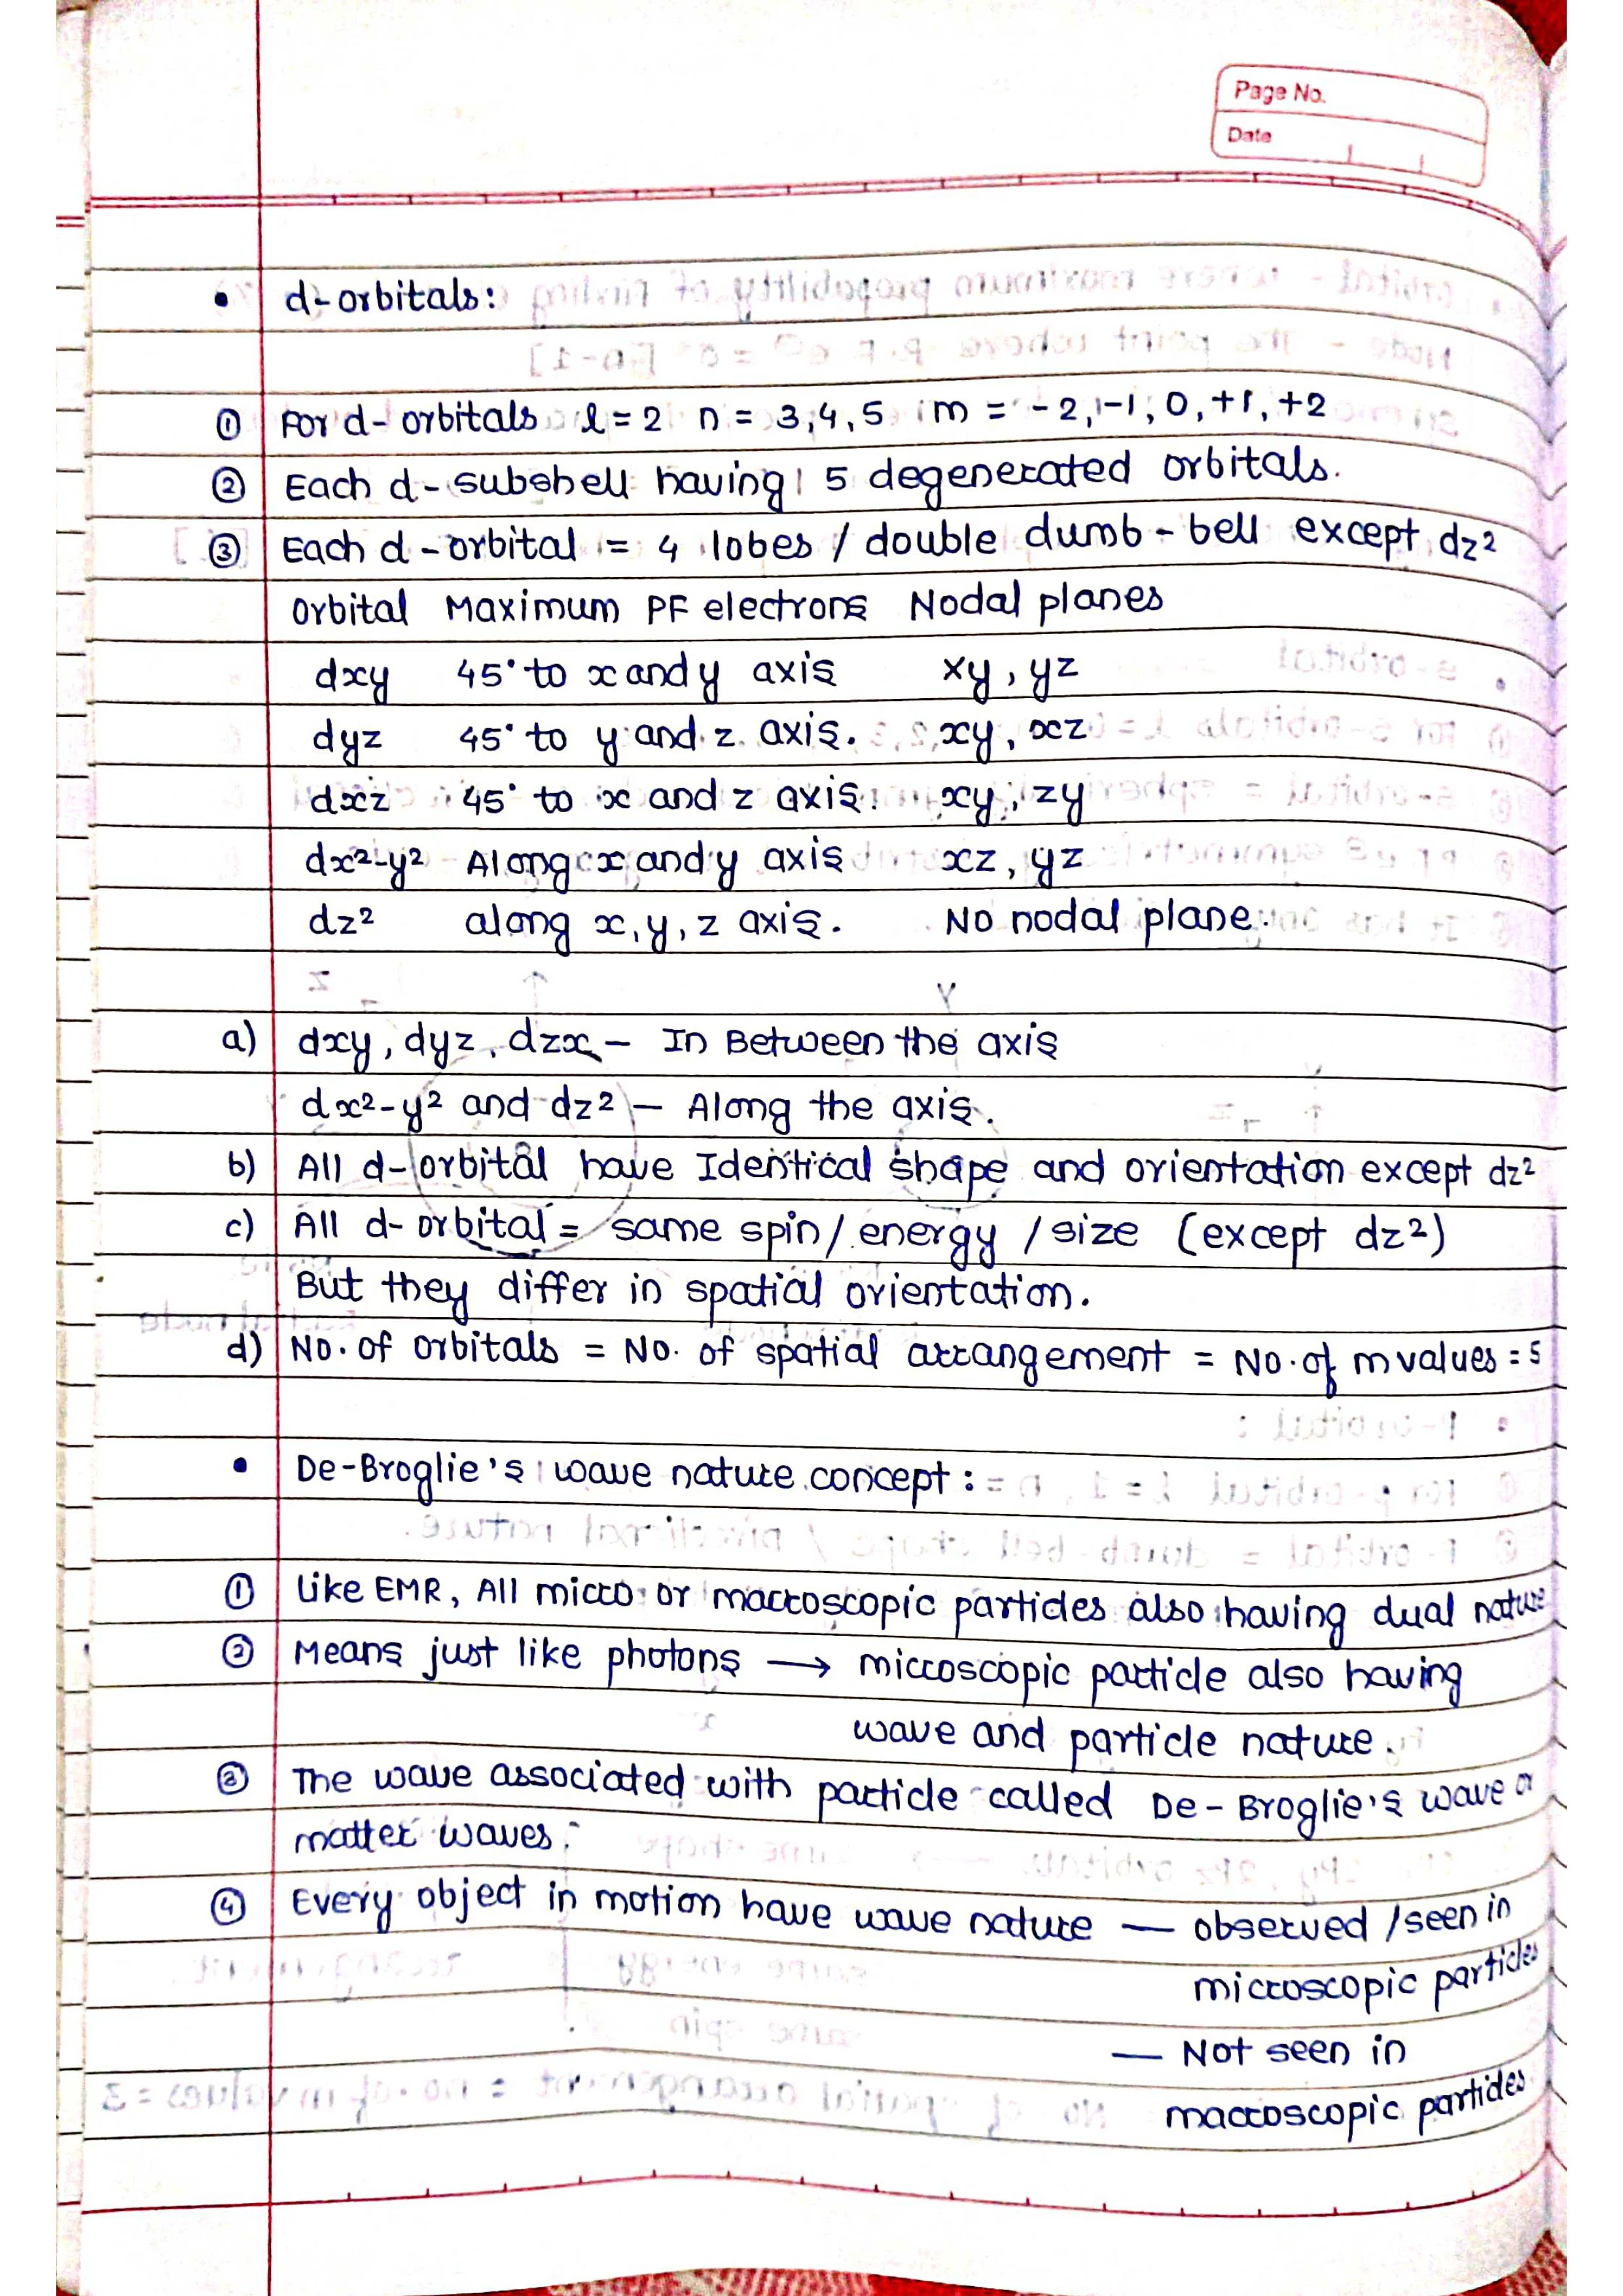 Page No.
Date
• d-orbitals:
① For d-orbitals l=2 n = 3,4,5 m = -2,-1,0,+1,+2
② Each d-subshell having 5 degenerated orbitals.
③ Each d-orbital = 4 lobes / double dumb-bell except dz²
Orbital Maximum PF electrons Nodal planes
dxy 45° to x and y axis xy, yz
dyz 45° to y and z axis. xy, xz
dxz 45° to x and z axis. xy, zy
dx²-y² Along x and y axis xz, yz
dz² along x, y, z axis. No nodal plane.
a) dxy, dyz, dzx – In Between the axis
dx²-y² and dz² – Along the axis.
b) All d-orbital have Identical shape and orientation except dz²
c) All d-orbital = same spin/energy/size (except dz²)
But they differ in spatial orientation.
d) No. of orbitals = No. of spatial arrangement = No. of m values = 5
• De-Broglie's wave nature concept:
① Like EMR, All micro or macroscopic particles also having dual nature
② Means just like photons → microscopic particle also having
wave and particle nature.
③ The wave associated with particle called De-Broglie's wave or
matter waves.
④ Every object in motion have wave nature — observed /seen in
microscopic particles
— Not seen in
macroscopic particles